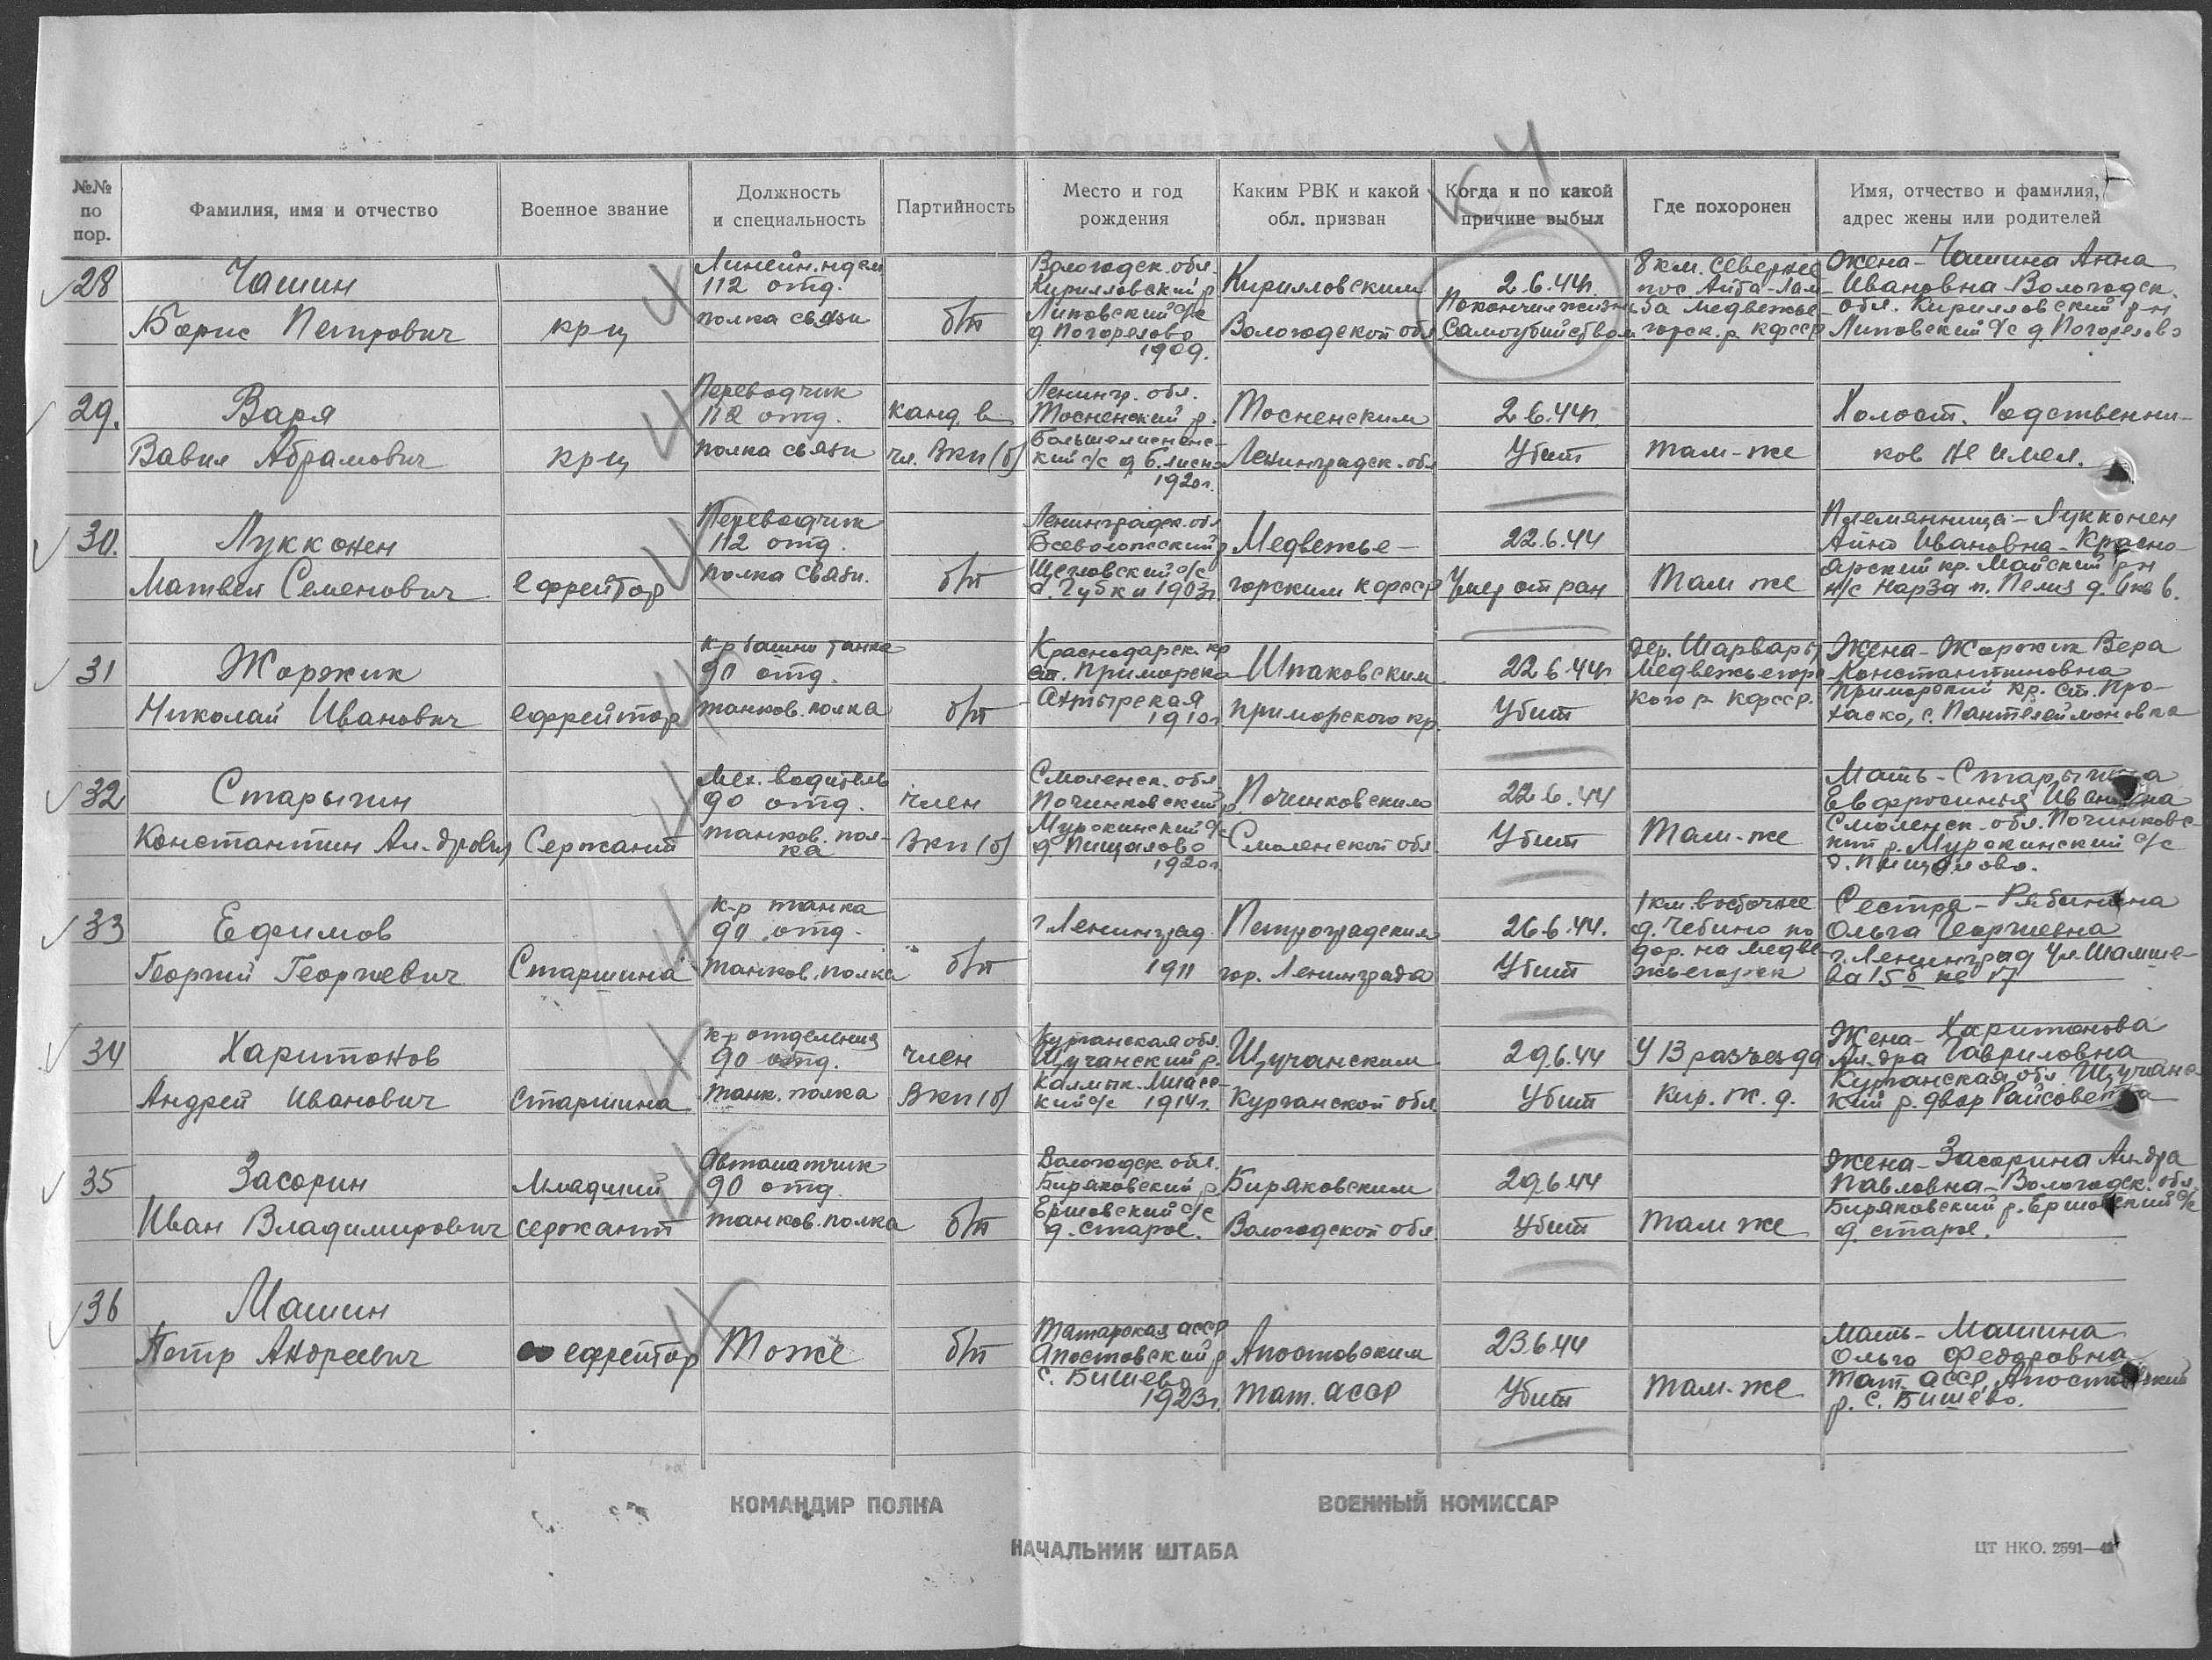 №№ по пор.
Фамилия, имя и отчество
Военное звание
Должность и специальность
Партийность
Место и год рождения
Каким РВК и какой обл. призван
Когда и по какой причине выбыл
Где похоронен
Имя, отчество и фамилия, адрес жены или родителей
28
Чашин
Борис Петрович
кр-ц
112 отд.
полка связи
б/п
Вологодск. обл.
Кирилловский р
Липовский с/с
д. Погорелово
1909.
Кирилловским
Вологодской обл
2.6.44г.
Покончил жизнь
Самоубийством
8 км. севернее
пос. Айба-Лам-
ба Медвежье-
горск. р. КФССР
Жена - Чашина Анна
Ивановна Вологодск.
обл. Кирилловский р-н
Липовский с/с д. Погорелово
29.
Варя
Вавил Абрамович
кр-ц
Переводчик
112 отд.
полка связи
канд. в
чл. ВКП(б)
Ленингр. обл.
Тосненский р.
1920г.
Тосненским
Ленинградск. обл
2.6.44г.
Убит
Там-же
Холост. Родственни-
ков не имел.
30.
Лукконен
Матвей Семенович
ефрейтор
Переводчик
112 отд.
полка связи.
б/п
Ленинградск. обл
Всеволожский р
Щегловский с/с
д. Губки 1903г.
Медвежье-
горским КФССР
22.6.44
Умер от ран
Там же
Племянница - Лукконен
Айно Ивановна - Красно-
ярский кр. Майский р-н
31
Жоржик
Николай Иванович
ефрейтор
к-р башни танка
90 отд.
танков. полка
б/п
Краснодарск. кр
ст. Приморско-
Ахтырская
1910г
Шпаковским
приморского кр.
22.6.44г.
Убит
дер. Шарвары
Медвежьегорс
кого р. КФССР.
Жена - Жоржик Вера
Константиновна
Приморский кр. ст. Про-
хаско, с. Пантелеймоновка
32
Старыгин
Константин Ал-дрович
Сержант
Мех. водитель
90 отд.
танков. пол-
ка
член
ВКП(б)
Смоленск. обл
Починковский р
Мурокинский с/с
д. Пищалово
1920г.
Починковским
Смоленской обл
22.6.44
Убит
Там-же
Мать - Старыгина
Ефросинья Ивановна
Смоленск. обл. Починковс-
кий р. Мурокинский с/с
д. Пищалово.
33
Ефимов
Георгий Георгиевич
Старшина
к-р танка
90 отд.
танков. полка
б/п
г. Ленинград
1911
Петроградским
гор. Ленинграда
26.6.44.
Убит
1 км. восточнее
д. Чебино по
дор. на Медве-
жьегорск
Сестра - Рябинина
Ольга Георгиевна
г. Ленинград ул. Шамше-
ва 15б кв 17
34
Харитонов
Андрей Иванович
старшина
к-р отделения
90 отд.
танк. полка
член
ВКП(б)
Курганская обл.
Щучанский р.
Калмык-Миасс-
кий с/с 1914г.
Щучанским
Курганской обл
29.6.44
Убит
У 13 разъезда
Кир. ж. д.
Жена - Харитонова
Ал-дра Гавриловна
Курганская обл. Щучанс
кий р. двор Райсовета
35
Засорин
Иван Владимирович
Младший
сержант
Автоматчик
90 отд.
танков. полка
б/п
Вологодск. обл.
Биряковский р
Ершовский с/с
д. Старое.
Биряковским
Вологодской обл
29.6.44
Убит
Там же
Жена - Засорина Ал-дра
Павловна - Вологодск. обл.
Биряковский р. Ершовский с/с
д. Старое.
36
Машин
Петр Андреевич
ефрейтор
Тоже
б/п
Татарская АССР
Апостовский р
с. Бишево
1923г.
Апостовским
Тат. АССР
23.6.44
Убит
Там-же
Мать - Машина
Ольга Федоровна
Тат. АССР, Апостовский
р. с. Бишево.
КОМАНДИР ПОЛКА
ВОЕННЫЙ КОМИССАР
НАЧАЛЬНИК ШТАБА
ЦТ НКО. 2591—42